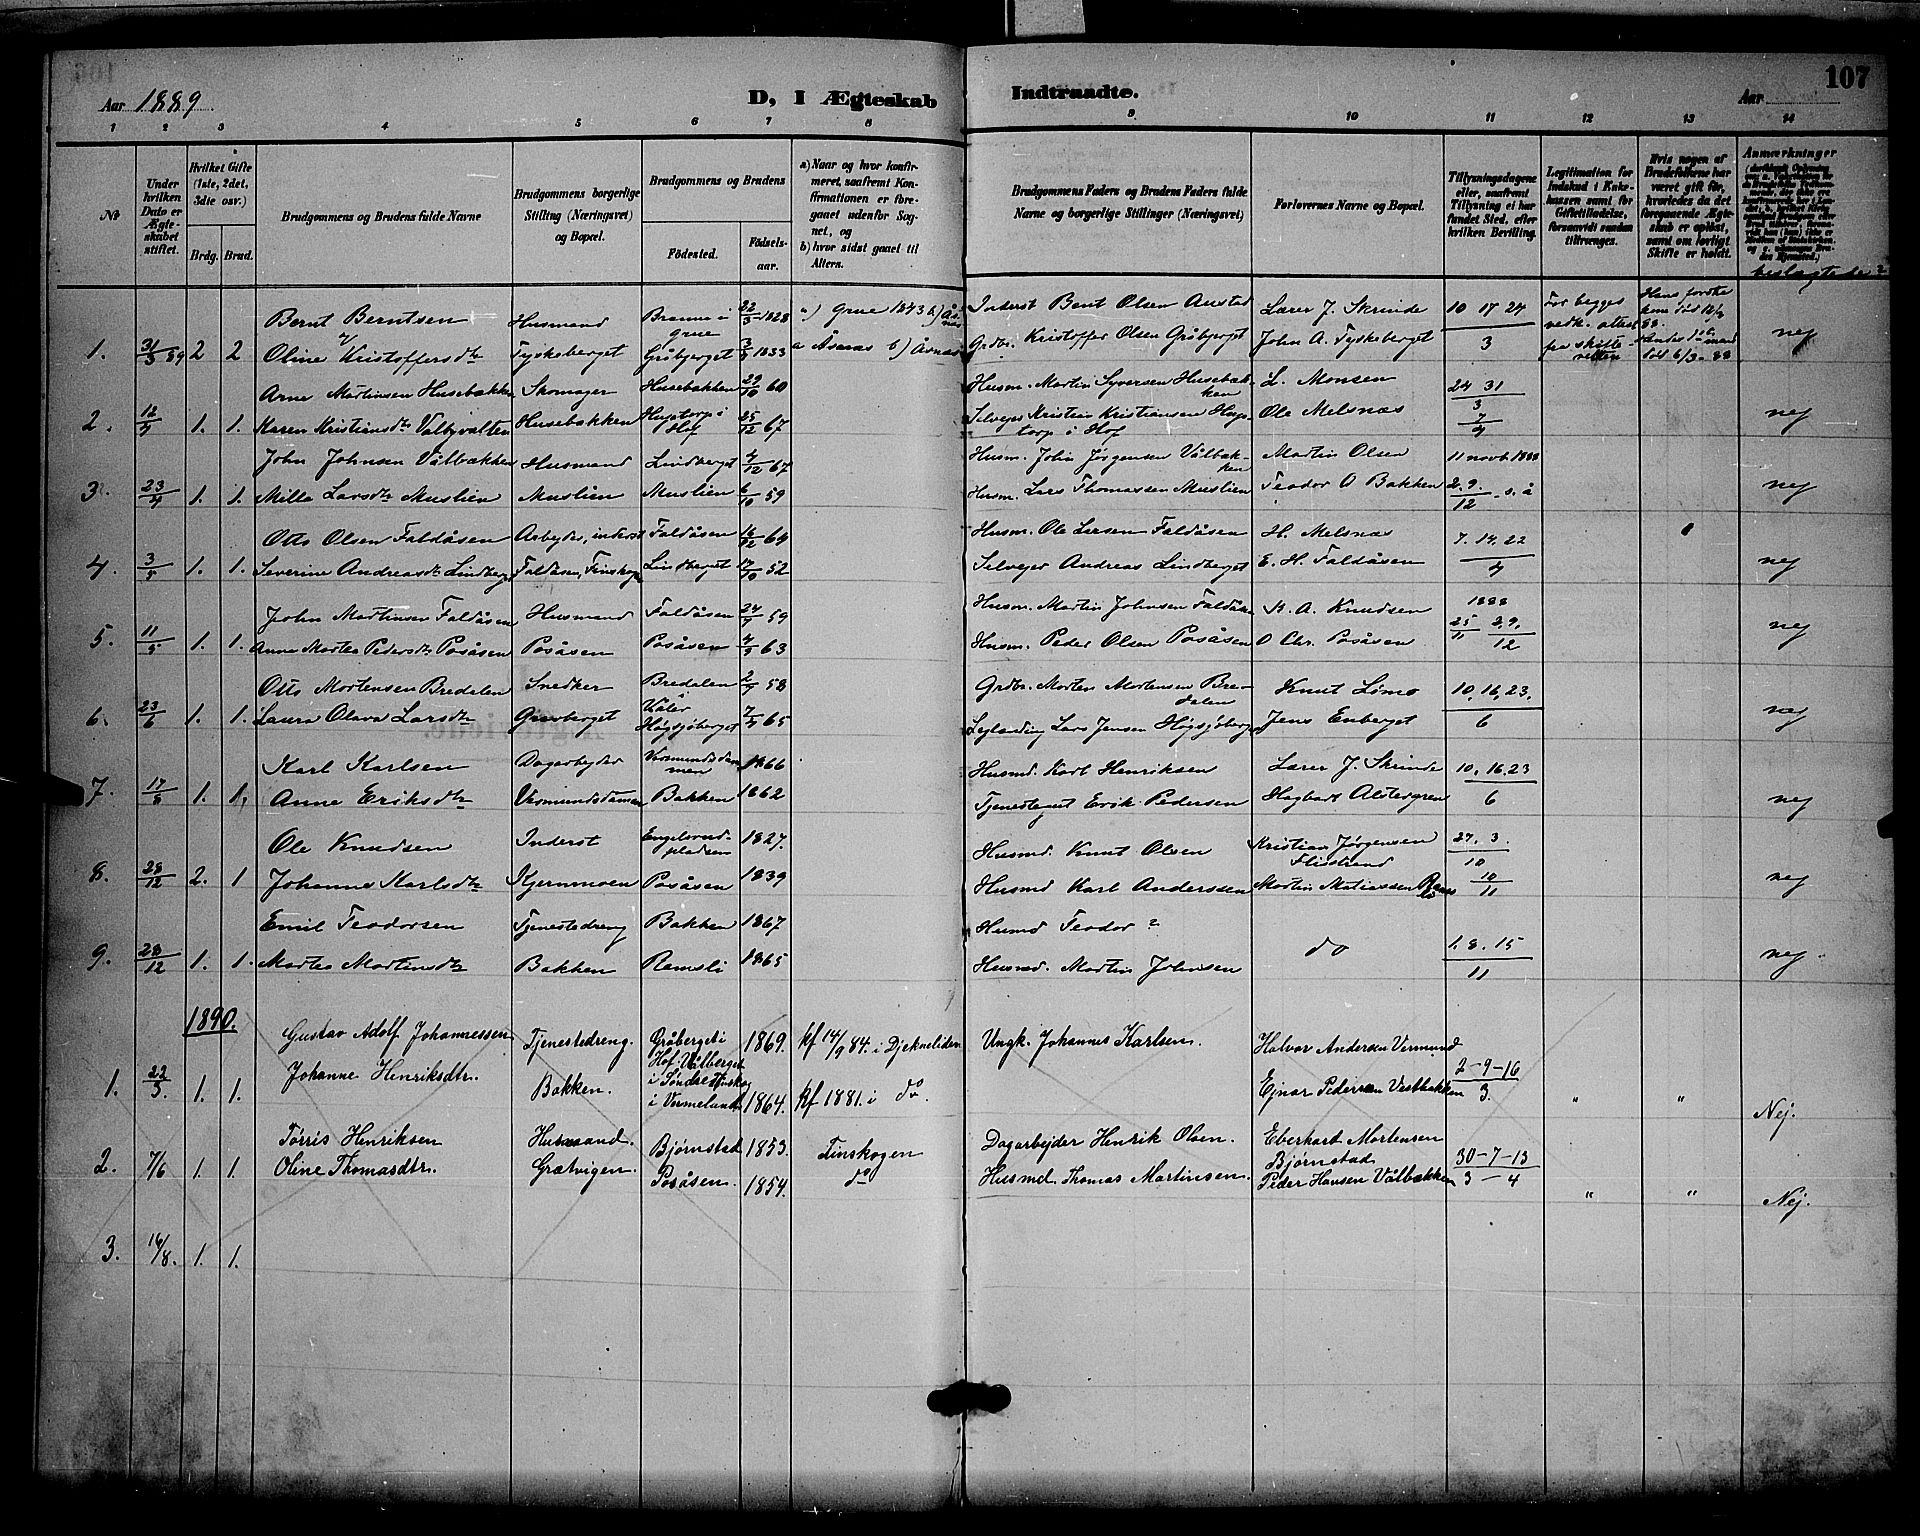 107
Aar 1889
D, I Ægteskab Indtraadte.
Aar
1 2 3 4 5 6 7 8 9 10 11 12 13 14
No
Under hvilken Dato er Ægteskabet stiftet.
Hvilket Gifte (1ste, 2det, 3die osv.)
Brdg. Brud.
Brudgommens og Brudens fulde Navne
Brudgommens borgerlige Stilling (Næringsvei) og Bopæl.
Brudgommens og Brudens
Födested.
Födselsaar.
a) Naar og hvor konfirmeret, saafremt Konfirmationen er foregaaet udenfor Sognet, og
b) hvor sidst gaaet til Alters.
Brudgommens Faders og Brudens Faders fulde Navne og borgerlige Stillinger (Næringsvei)
Forlovernes Navne og Bopæl.
Tillysningsdagene eller, saafremt Tillysning ei har fundet Sted, efter hvilken Bevilling.
Legitimation for Indskud i Enkekassen samt for Giftetilladelse, forsaavidt saadan tiltrænges.
Hvis nogen af Brudefolkene har været gift før, hvorledes da det foregaaende Ægteskab er oplöst, samt om lovligt Skifte er holdt.
Anmærkninger
beslægtede?
Bernt Berntsen Husmand Branne i grue 22/3 1828 a) Grue 1843 b) Åsnæs Inderst Bent Olsen Austad Lærer J. Skrinde 10 17 24 For begges Hans forste
1. 31/3 89 2 2 Oline Kristoffersdtr Tyskeberget Gråberget 3/3 1833 a Åsnæs b) Åsnæs Grdbr. Kristoffer Olsen Gråberget John A. Tyskeberget 3 vedk. attest fra skifteretten nej
Arne Martinsen Husebakken Skomager Husebakken 29/10 60 Husm. Martin Syversen Husebakken L. Monsen 24 31
2. 12/4 1. 1. Karen Kristiansdtr Valbyvalten Husebakken Hof 25/12 67 Selveger Kristian Kristiansen i Hof Ole Melsnæs 3 7/4 nej
John Johnsen Vålbakken Husmand Lindberget 4/12 67 Husm. John Jørgensen Vålbakken Martin Olsen 11 novb. 1888
3. 23/4 1. 1. Mille Larsdtr Muslien Muslien Muslien 6/10 59 Husm. Lars Thomassen Muslien Teodor O Bakken 2. 9. 12 s. å nej
Otto Olsen Faldåsen Arbejder, inderst Faldåsen 16/12 64 Husm. Ole Larsen Faldåsen H. Melsnæs 7. 14. 22
4. 3/5 1. 1. Severine Andreasdtr Lindberget Faldåsen, Finskogen Lindberget 17/10 52 Selveger Andreas Lindberget E. H. Faldåsen 4 nej
John Martinsen Faldåsen Husmand Faldåsen 24/7 59 Husm. Martin Johnsen Faldåsen K. A. Knudsen 1888
5. 11/5 1. 1. Anne Martea Pedersdtr Posåsen Posåsen Posåsen 4/3 63 Husm. Peder Olsen Posåsen O Chr. Posåsen 25/11 2. 9. 12 nej
Otto Mortensen Bredalen Snedker Bredalen 2/9 58 Grdbr. Morten Mortensen Bredalen Knut Limo 10, 16, 23,
6. 23/6 1. 1. Laura Olava Larsdtr Gravberget Våler Høgsjøberget 7/4 65 Lars Jensen Høgsjøberget Jens Enberget 6 nej
Karl Karlsen Dagarbejder Vermundsdammen 1866 Husmd. Karl Henriksen Lærer J. Skrinde 10, 16, 23
7. 17/8 1. 1. Anne Eriksdtr Vermundsdammen Bakken 1862 Tjenestegut Erik Pedersen Hagbart Alstergren 6 nej
Ole Knudsen Inderst pladsen 1827 Husmd. Knut Olsen Kristian Jørgensen Flisstrand 27. 3. 10
8. 28/12 2. 1 Johanne Karlsdtr Kjernmoen Posåsen 1839 Husmd Karl Anderssen Martin Matiassen 10/11 nej
Emil Teodorsen Tjenestedreng Bakken 1867 Husmd Teodor ?
9. 28/12 1. 1. Martea Martinsdtr Bakken Ramsli 1865 Husmd. Martin Johnsen do 1. 8. 15 11 nej
1890.
Gustav Adolf Johannessen Tjenestedreng. Gråberget i Hof. 1869. kf 14/9 84. i Djekneliden Ungk. Johannes Karlsen. Halvor Andersen Vermund
1. 22/3. 1. 1. Johanne Henriksdtr. Bakken. Vålberget i Søndre Finskog i Vermeland 1864. kf 1881. i do. Ejnar Pedersen Vestbakken 2-9-16 3. " " Nej.
Tørris Henriksen Husmand. Bjørnstad 1853. Finskogen Dagarbejder Henrik Olsen. Eberhart Mortensen Bjørnstad 30-7-13
2. 7/6 1. 1. Oline Thomasdtr. Grætvigen. Posåsen. 1854. do Husmd. Thomas Martinsen. Peder Hansen Vålbakken 3 - 4 " " Nej.
3. 16/8. 1. 1.